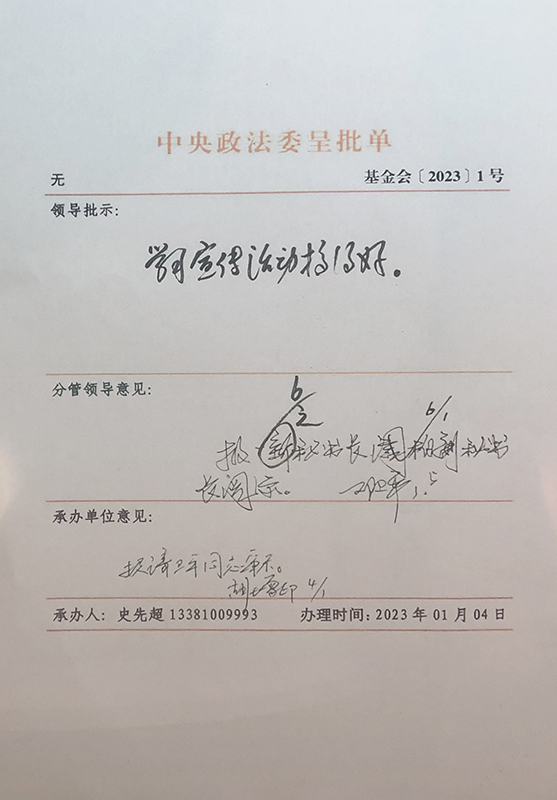 中央政法委呈批单
无 基金会〔2023〕1号
领导批示：
宣传活动搞得好。
分管领导意见：
6/2 6/1
报 新 秘书长 副秘书
长阅示。 1.5
承办单位意见：
拟请卫平同志审示。
4/1
承办人：史先超 13381009993 办理时间：2023年01月04日